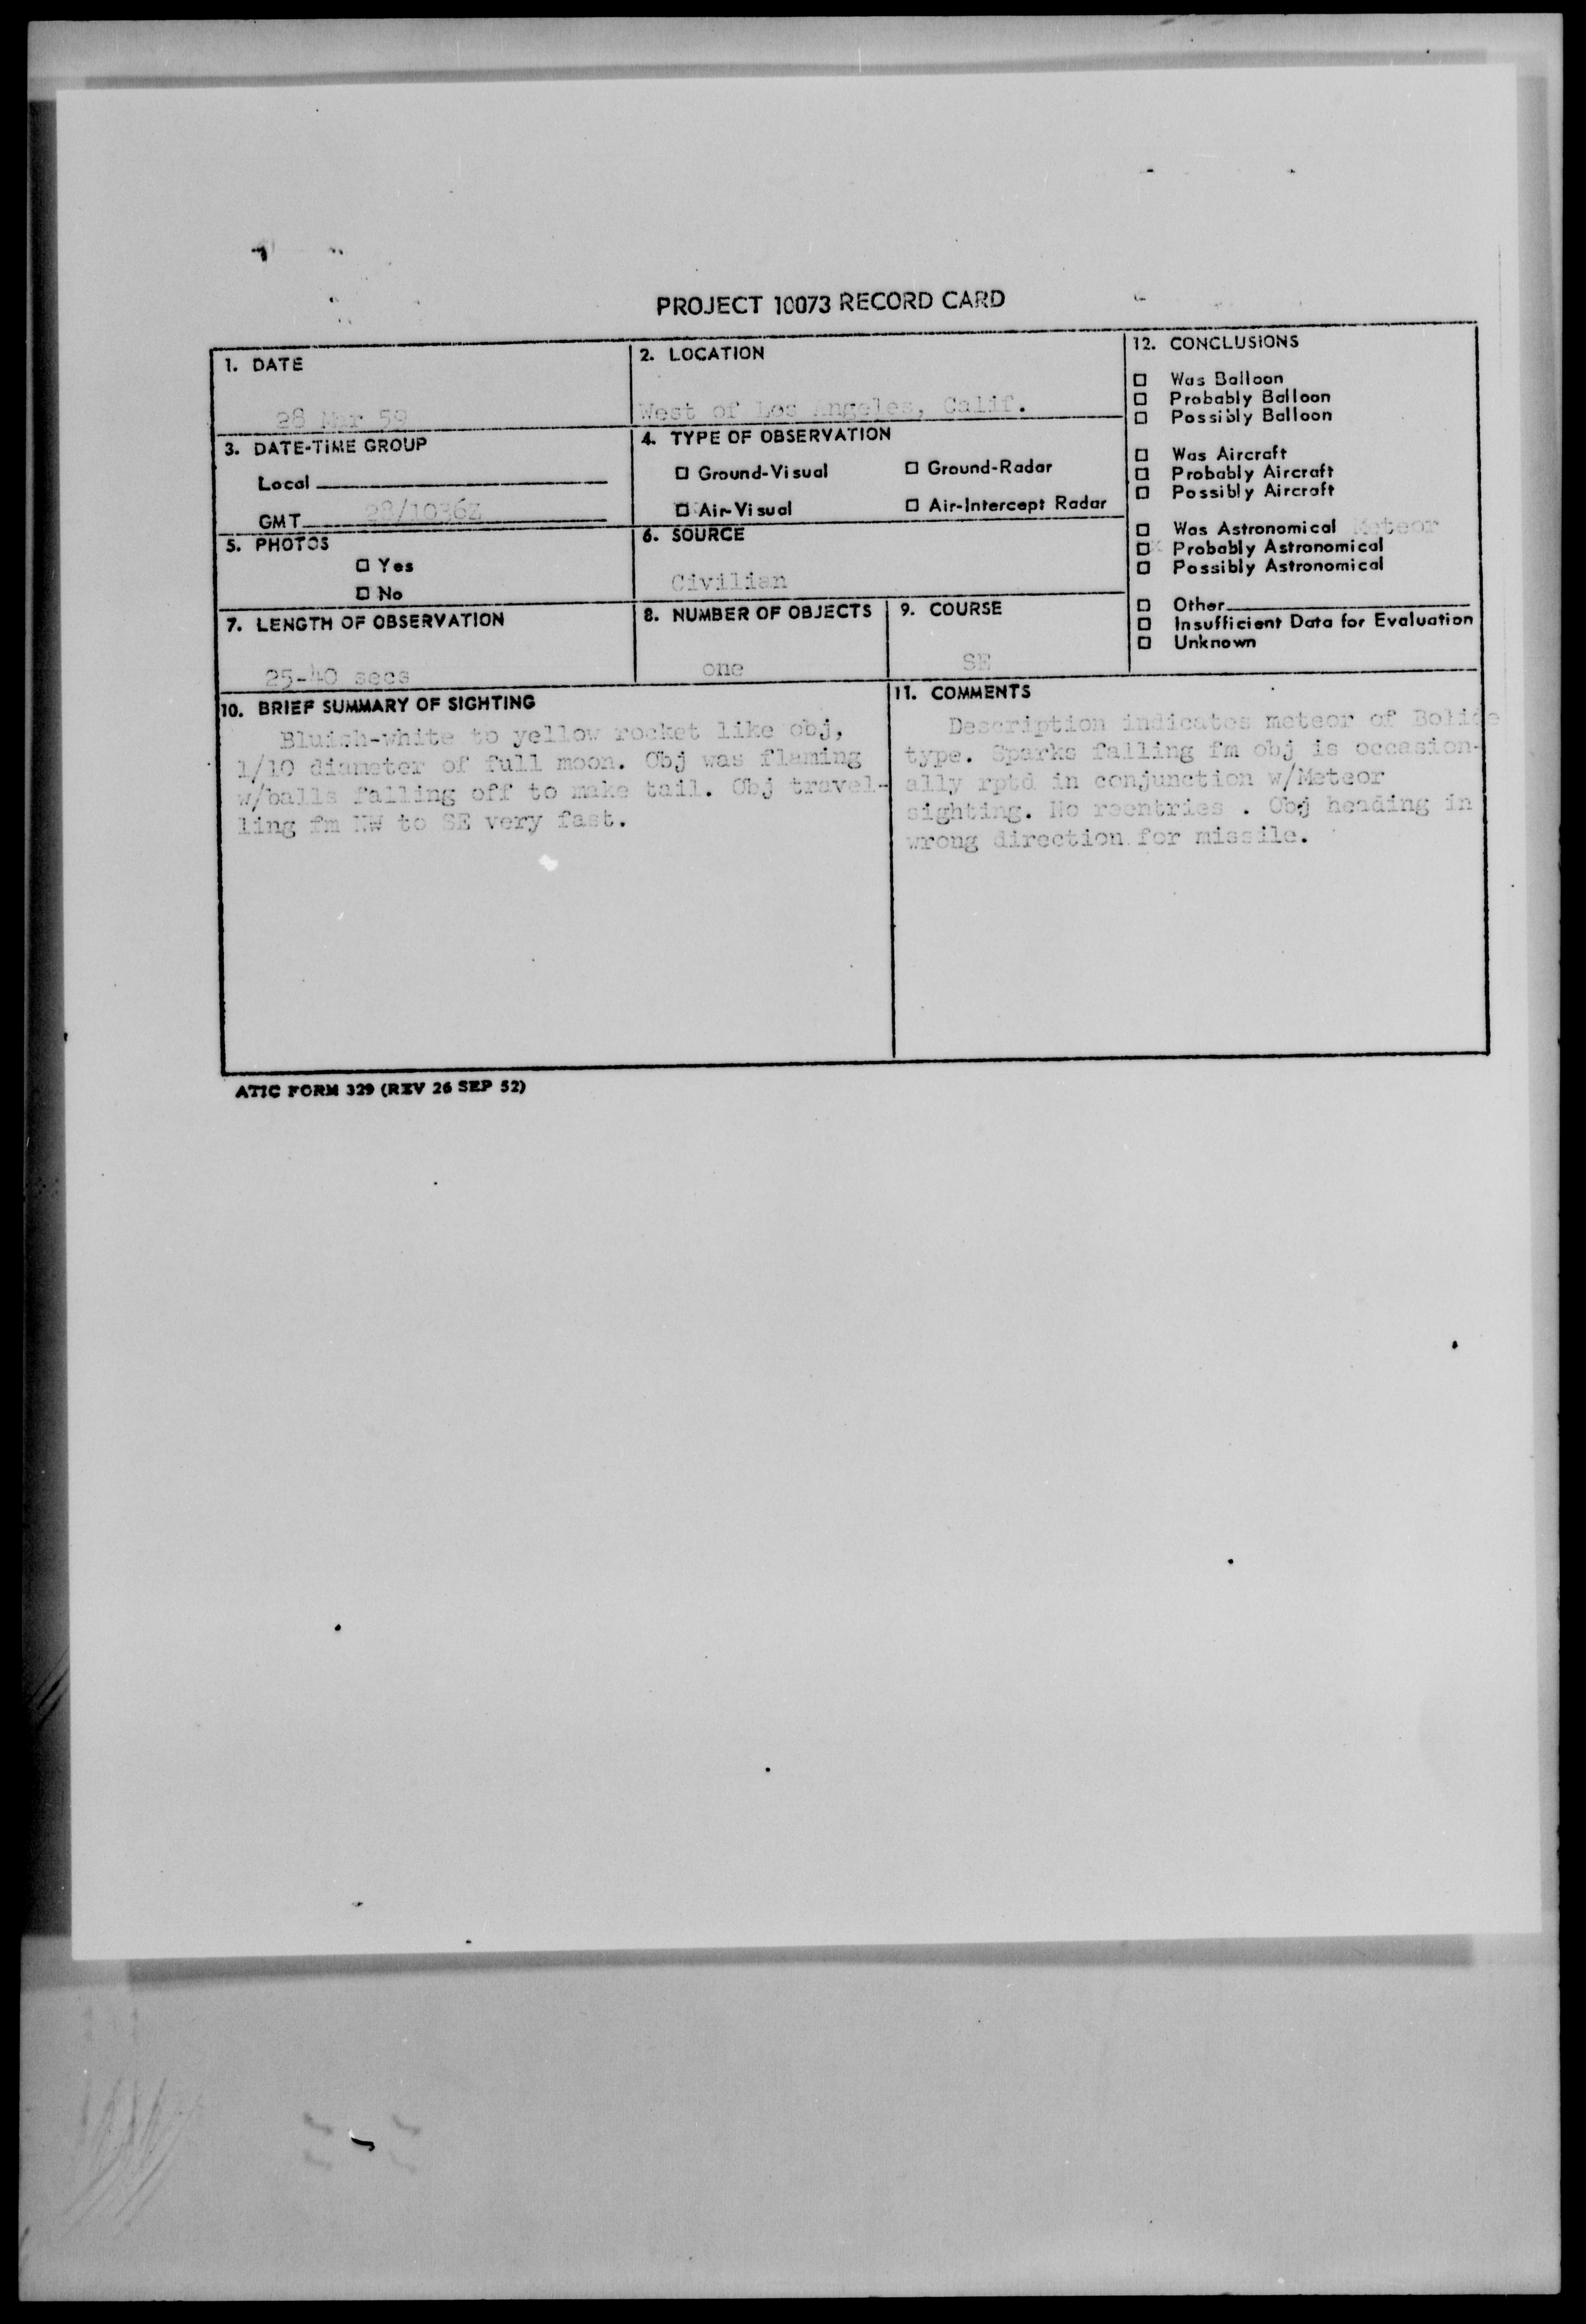 PROJECT 10073 RECORD CARD
1. DATE
28 Mar 59
2. LOCATION
West of Los Angeles, Calif.
3. DATE-TIME GROUP
Local
GMT 28/1036Z
4. TYPE OF OBSERVATION
Ground-Visual Ground-Radar
Air-Visual Air-Intercept Radar
5. PHOTOS
Yes
No
6. SOURCE
Civilian
7. LENGTH OF OBSERVATION
25-40 secs
8. NUMBER OF OBJECTS
one
9. COURSE
SE
12. CONCLUSIONS
Was Balloon
Probably Balloon
Possibly Balloon
Was Aircraft
Probably Aircraft
Possibly Aircraft
Was Astronomical Meteor
Probably Astronomical
Possibly Astronomical
Other
Insufficient Data for Evaluation
Unknown
10. BRIEF SUMMARY OF SIGHTING
Bluish-white to yellow rocket like obj,
1/10 diameter of full moon. Obj was flaming
w/balls falling off to make tail. Obj travel-
ling fm NW to SE very fast.
11. COMMENTS
Description indicates meteor of Bolide
type. Sparks falling fm obj is occasion-
ally rptd in conjunction w/Meteor
sighting. No reentries . Obj heading in
wrong direction for missile.
ATIC FORM 329 (REV 26 SEP 52)